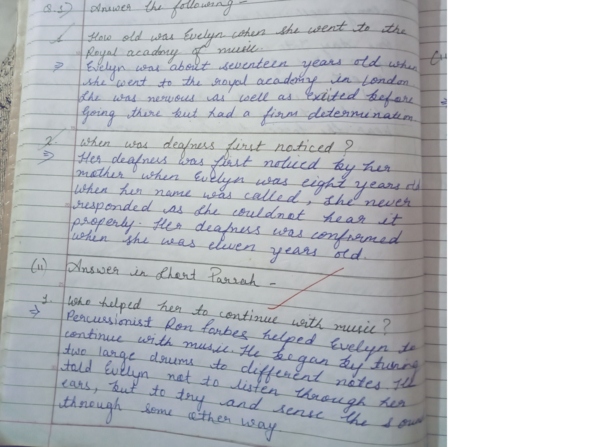 Q.1) Answer the following -
1. How old was Evelyn when she went to the
Royal academy of music.
⇒ Evelyn was about seventeen years old when
she went to the royal academy in London
She was nervous as well as exited before
going there but had a firm determination
2. When was deafness first noticed ?
⇒ Her deafness was first noticed by her
mother when Evelyn was eight years old
when her name was called, she never
responded as she couldnot hear it
properly. Her deafness was confirmed
when she was eleven years old.
(ii) Answer in short Parrah -
1. Who helped her to continue with music ?
⇒ Percussionist Ron forbes helped Evelyn to
continue with music. He began by tuning
two large drums to different notes. He
told Evelyn not to listen through her
ears, but to try and sense the sound
through some other way.